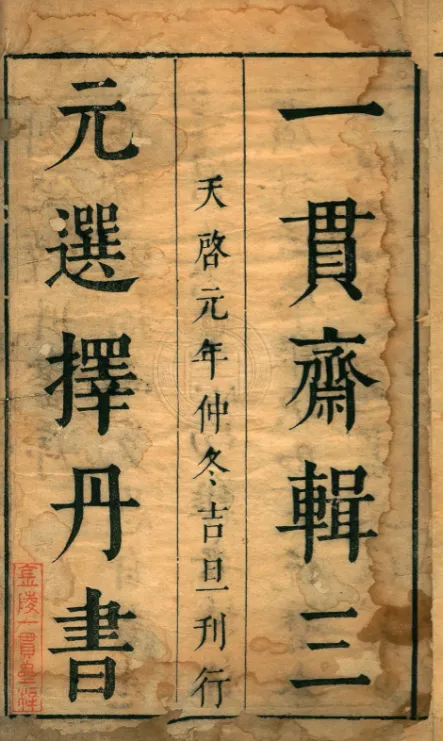 一貫齋輯三
天啓元年仲冬吉旦刊行
元選擇丹書
金陵一貫